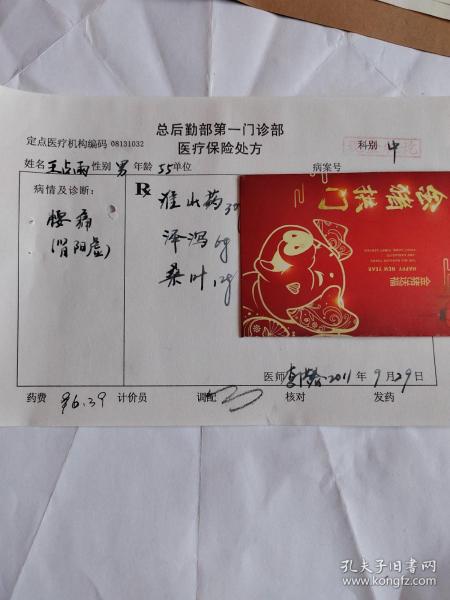 总后勤部第一门诊部
定点医疗机构编码 08131032
医疗保险处方
科别 中
姓名 王占雨 性别 男 年龄 55 单位 病案号
病情及诊断：
腰痛
(肾阳虚)
R
淮山药 30
泽泻 6g
桑叶 12g
金猪拱门
金猪送福
HAPPY NEW YEAR
医师 2011 年 9 月 29 日
药费 96.39 计价员 调配 核对 发药
孔夫子旧书网
www.kongfz.com